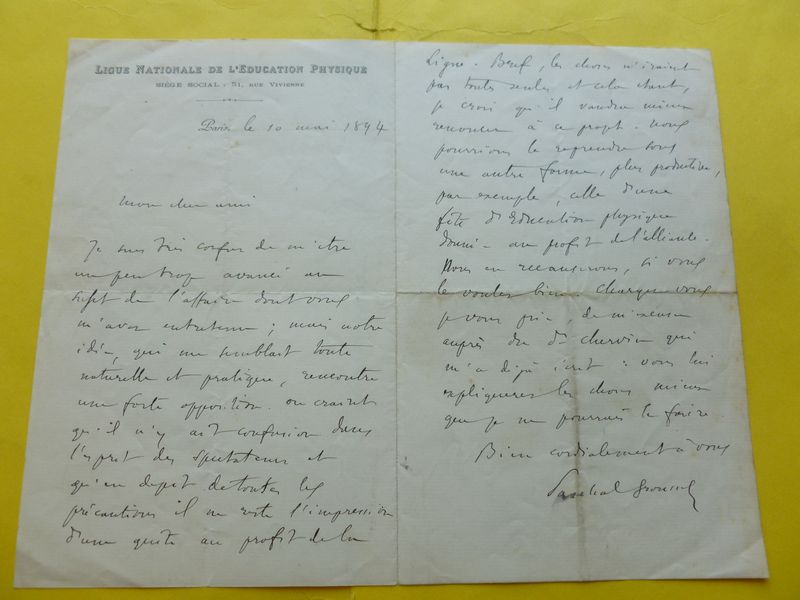 LIGUE NATIONALE DE L'EDUCATION PHYSIQUE
SIÈGE SOCIAL : 51, RUE VIVIENNE
Paris, le 10 mai 1894
Mon cher ami
Je suis très confus de m'être
un peu trop avancé au
sujet de l'affaire dont vous
m'avez entretenu ; mais notre
idée, qui me semblait toute
naturelle et pratique, rencontre
une forte opposition. On craint
qu'il n'y ait confusion dans
l'esprit des spectateurs et
qu'en dépit de toutes les
précautions il ne reste l'impression
d'une quête au profit de la
Ligue. Bref, les choses n'iraient
pas toutes seules et cela étant,
je crois qu'il vaudra mieux
renoncer à ce projet. Nous
pourrions le reprendre sous
une autre forme, plus productive,
par exemple, celle d'une
fête d'Education physique
donnée au profit de l'alliance.
Nous en recauserons, si vous
le voulez bien. Chargez vous
je vous prie, de m'excuser
auprès du Dr Chervin qui
m'a déjà écrit : vous lui
expliquerez les choses mieux
que je ne pourrais le faire.
Bien cordialement à vous
Paschal Grousset